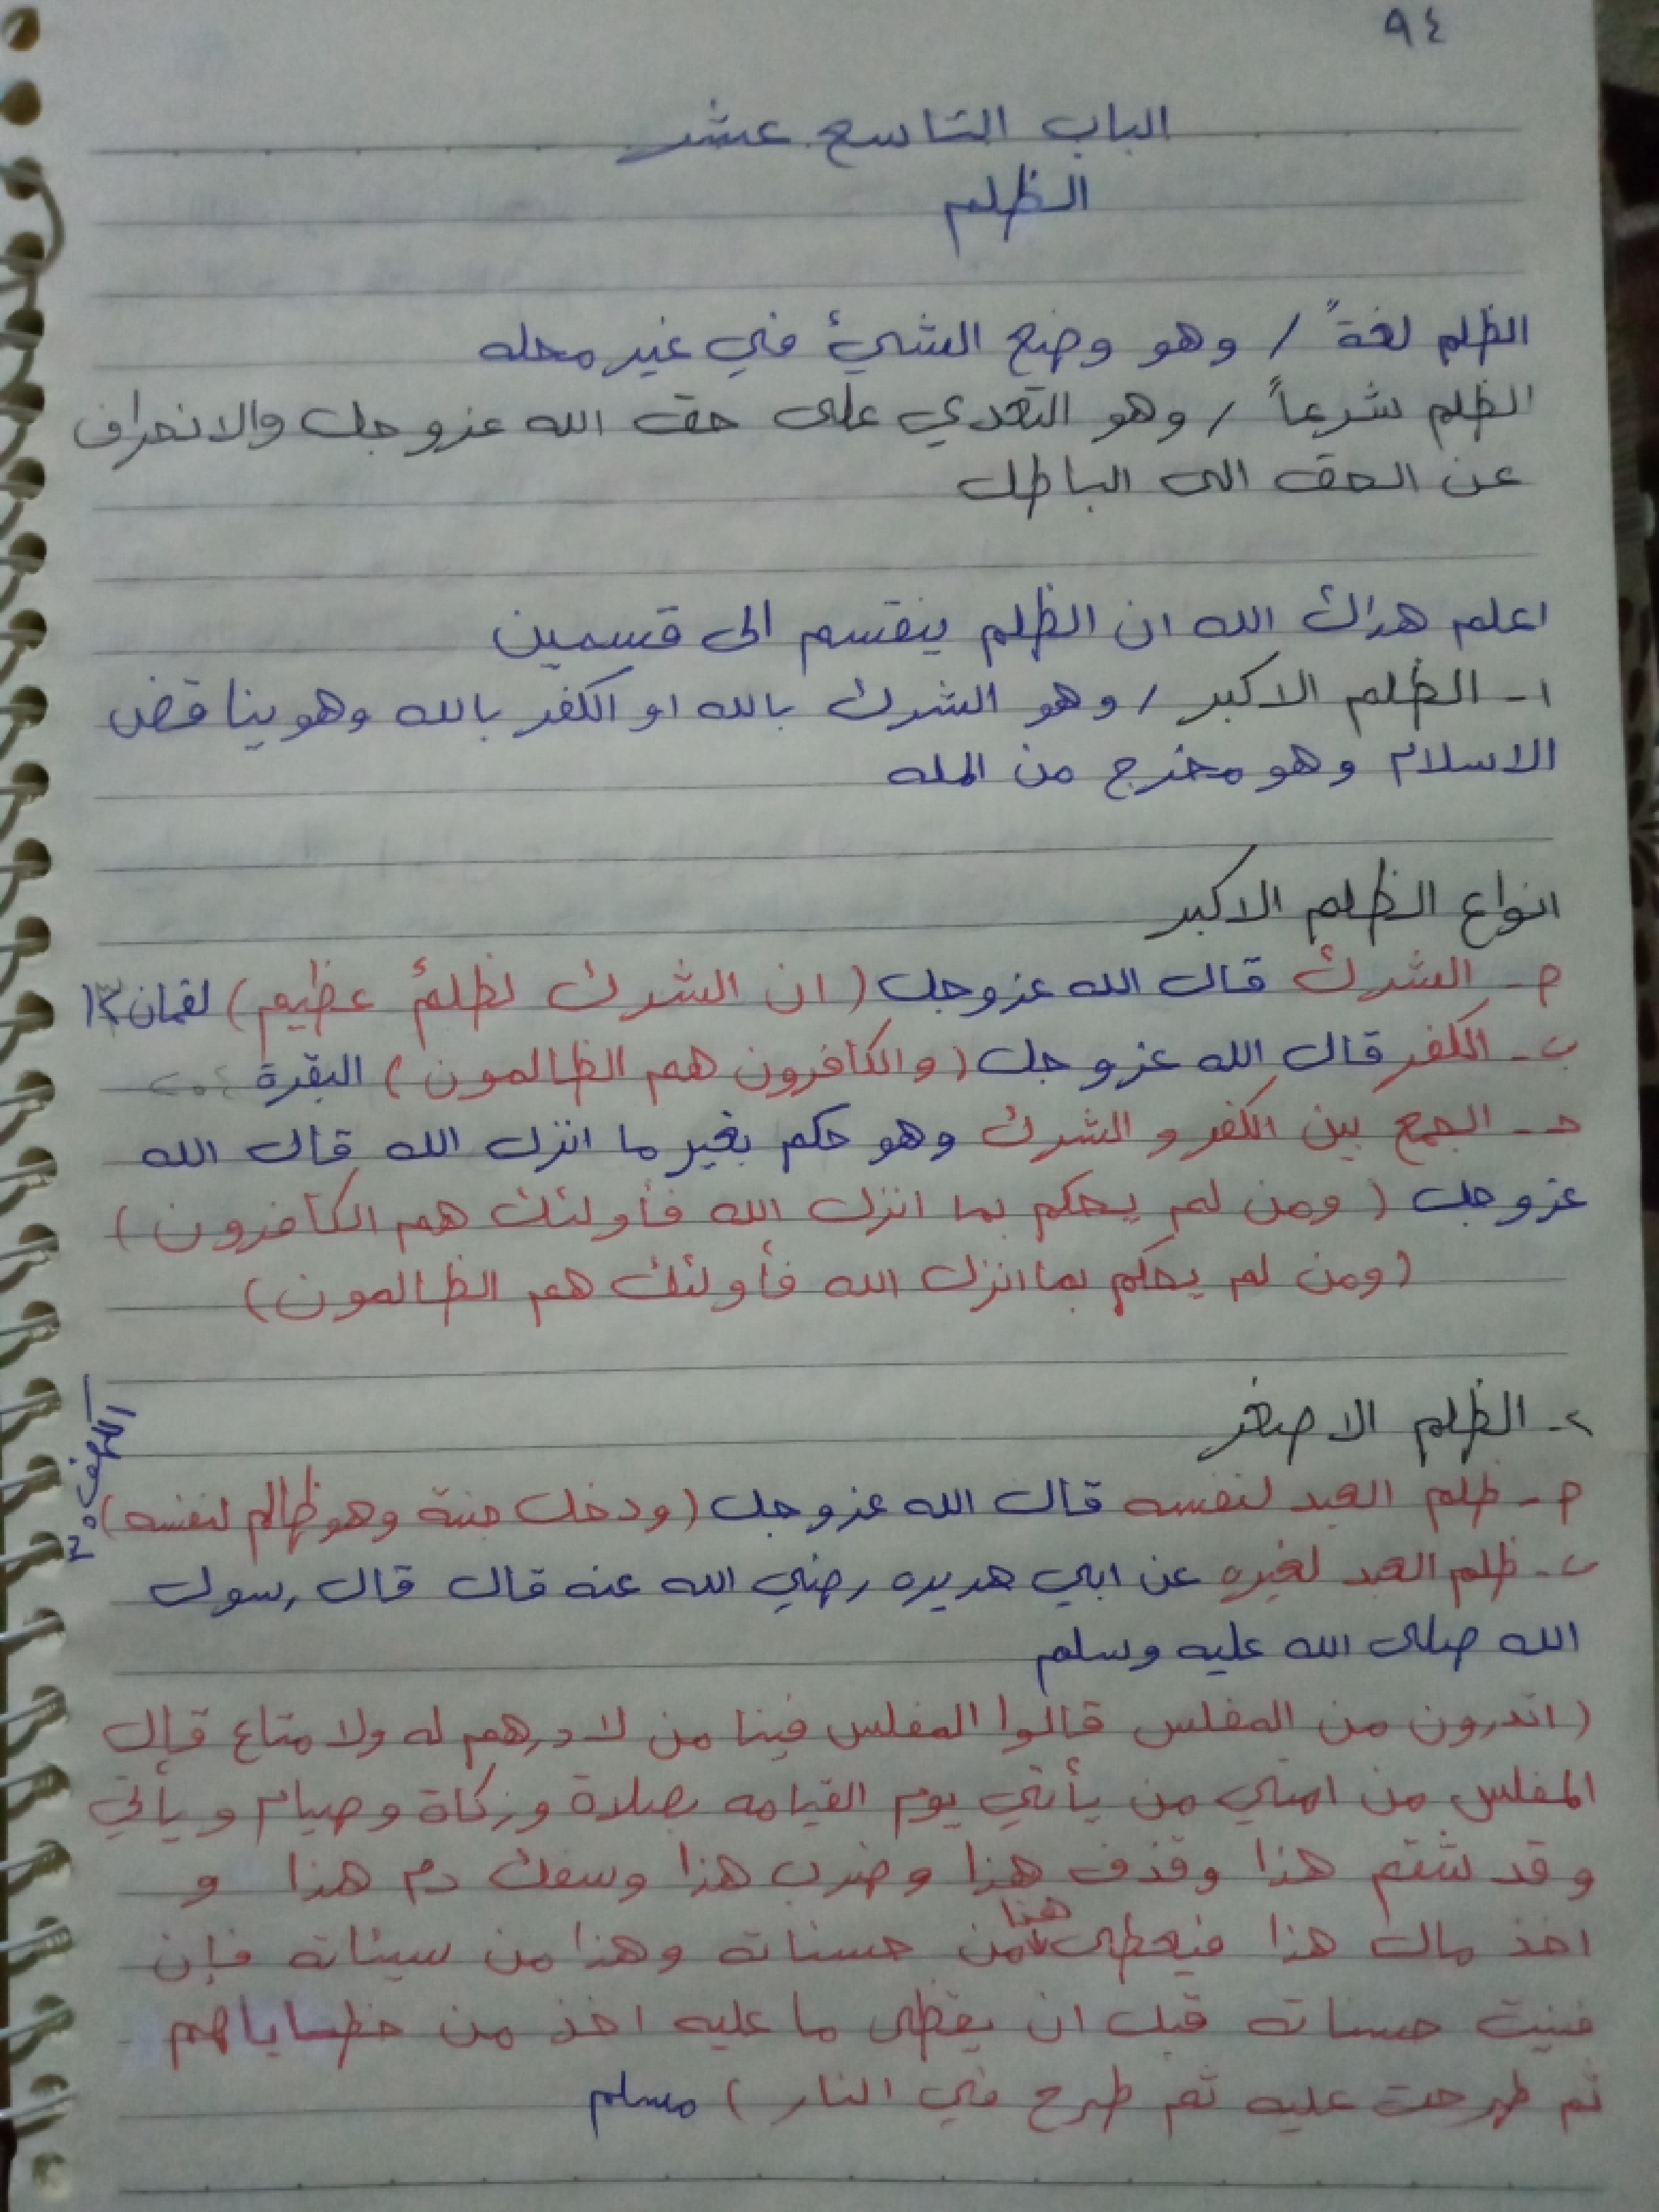 ٩٤
الباب التاسع عشر
الظلم
الظلم لغةً / وهو وضع الشيئ في غير محله
الظلم شرعاً / وهو التعدي على حق الله عزوجل والانحراف
عن الحق الى الباطل
اعلم هداك الله ان الظلم ينقسم الى قسمين
١- الظلم الاكبر / وهو الشرك بالله او الكفر بالله وهو يناقض
الاسلام وهو مخرج من المله
انواع الظلم الاكبر
م - الشرك قال الله عزوجل (ان الشرك لظلمٌ عظيم) لقمان ١٣
ب - الكفر قال الله عزوجل (والكافرون هم الظالمون) البقرة
حـ - الجمع بين الكفر و الشرك وهو حكم بغير ما انزل الله قال الله
عزوجل (ومن لم يحكم بما انزل الله فأولئك هم الكافرون)
(ومن لم يحكم بما انزل الله فأولئك هم الظالمون)
٢- الظلم الاصغر
م - ظلم العبد لنفسه قال الله عزوجل (ودخل جنة وهو ظالم لنفسه) الكهف ٣٥
ب - ظلم العبد لغيره عن ابي هريره رضي الله عنه قال قال رسول
الله صلى الله عليه وسلم
(اتدرون من المفلس قالوا المفلس فينا من لا درهم له ولا متاع قال
المفلس من امتي من يأتي يوم القيامه بصلاة وزكاة وصيام ويأتي
وقد شتم هذا وقذف هذا وضرب هذا وسفك دم هذا و
اخذ مال هذا فيعطى هذا من حسناته وهذا من سيئاته فإن
فنيت حسناته قبل ان يقظى ما عليه اخذ من خطاياهم
ثم طرحت عليه ثم طرح في النار) مسلم